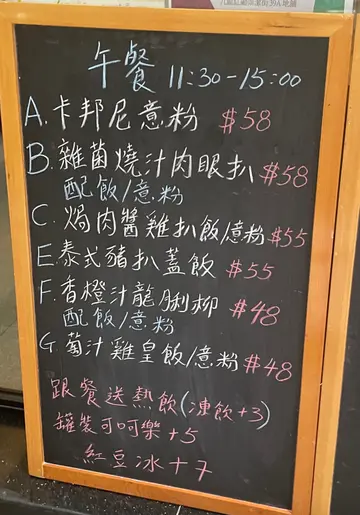 午餐 11:30-15:00
A.卡邦尼意粉 $58
B.雜菌燒汁肉眼扒 $58
配飯/意粉
C.焗肉醬雞扒飯/意粉 $55
E.泰式豬扒蓋飯 $55
F.香橙汁龍脷柳 $48
配飯/意粉
G.葡汁雞皇飯/意粉 $48
跟餐送熱飲(凍飲+3)
罐裝可口可樂+5
紅豆冰+7